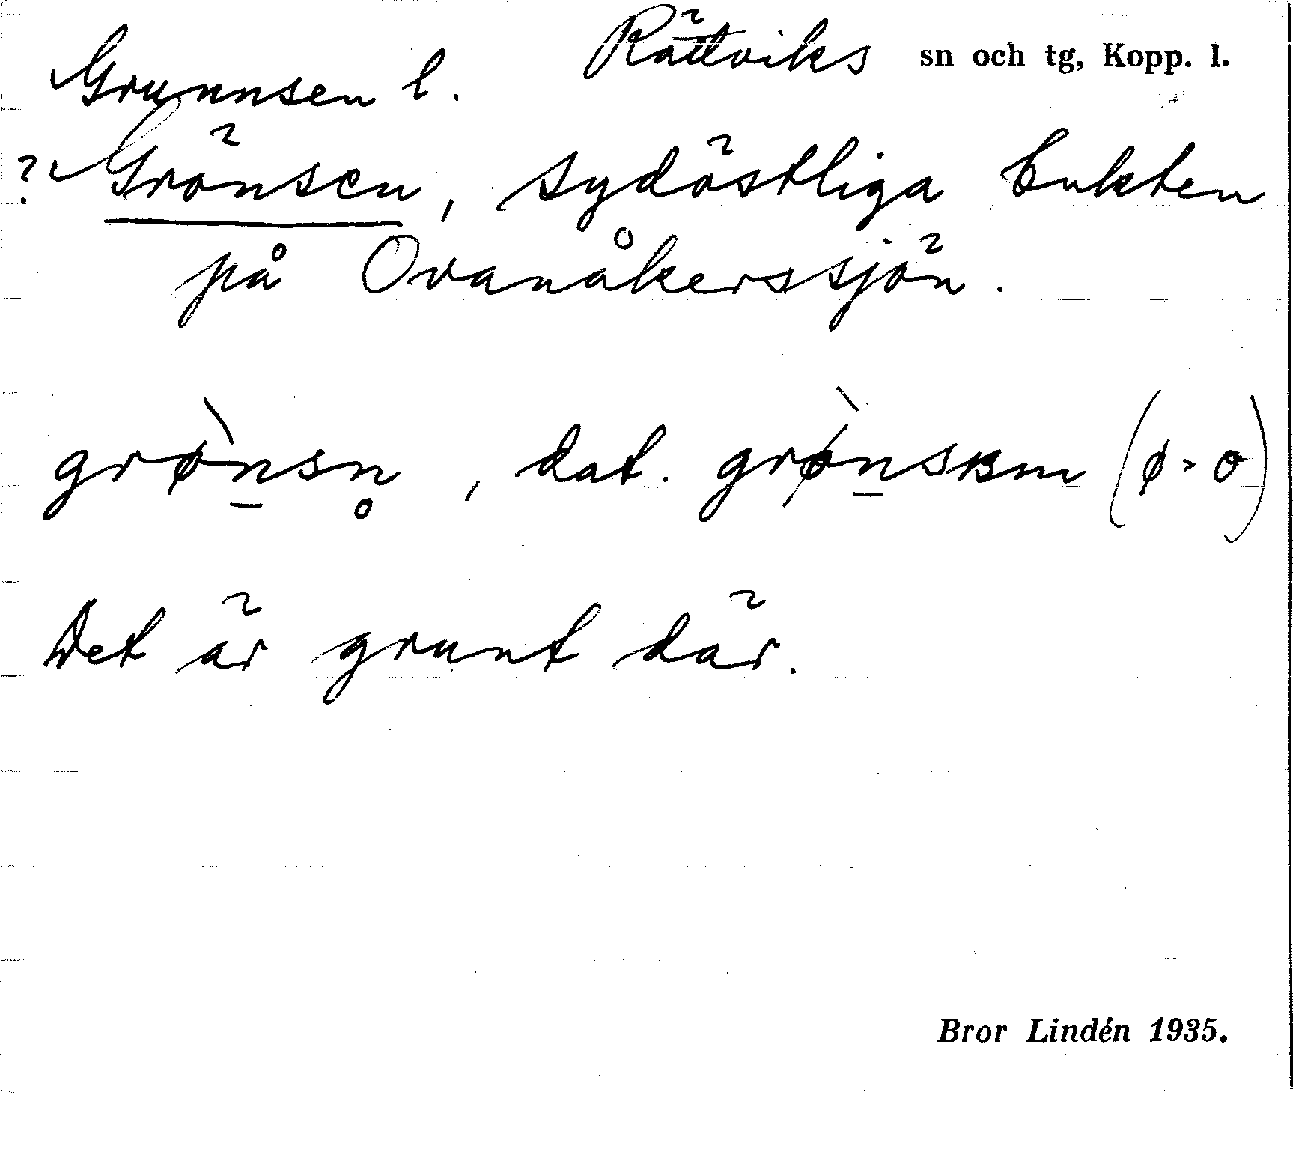 Rättviks sn och tg, Kopp. l.
Grunnsen l.
? Grönsen, sydöstliga bukten
på Ovanåkerssjön.
grø̀n̠sn̥, dat. grø̀n̠sʀm (ø > o)
Det är grunt där.
Bror Lindén 1935.